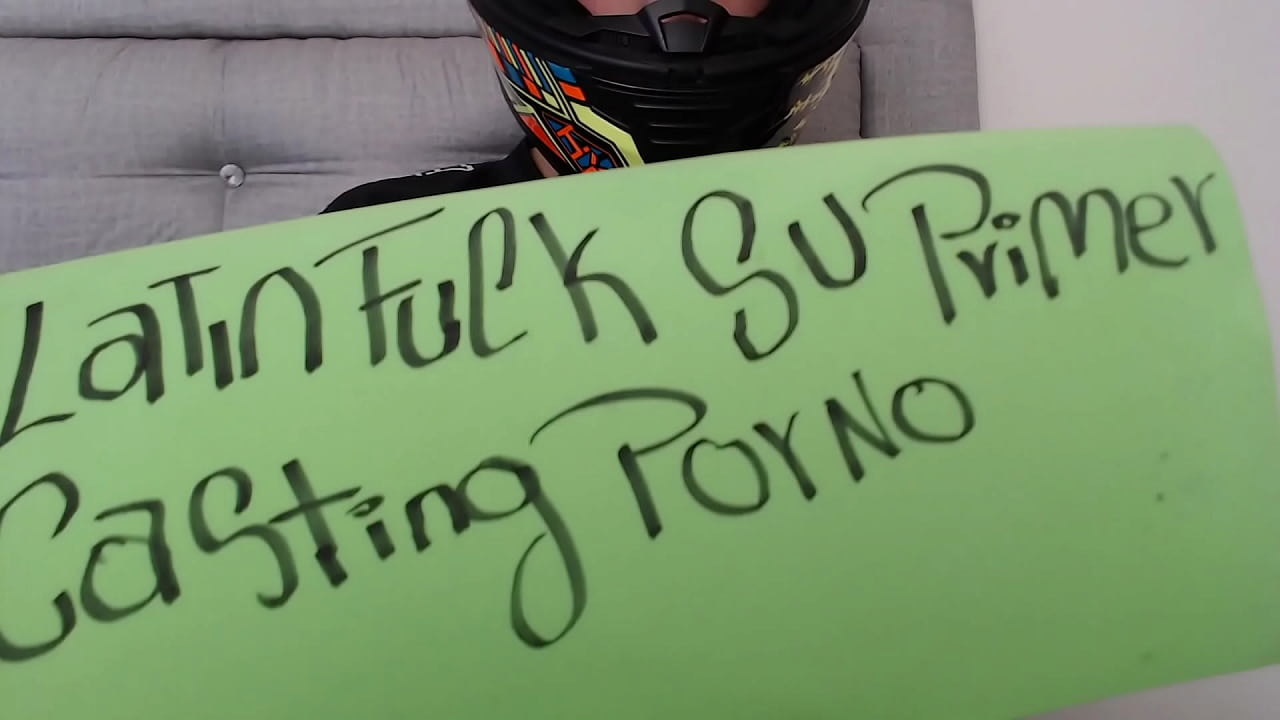 LaTin Fuck SU Primer
Casting PORNO